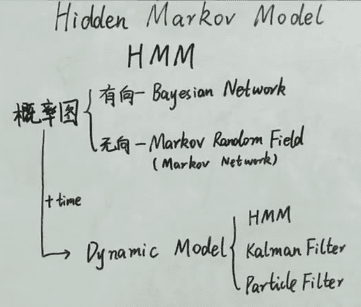 Hidden Markov Model
HMM
概率图
有向 - Bayesian Network
无向 - Markov Random Field
(Markov Network)
+ time
Dynamic Model
HMM
Kalman Filter
Particle Filter